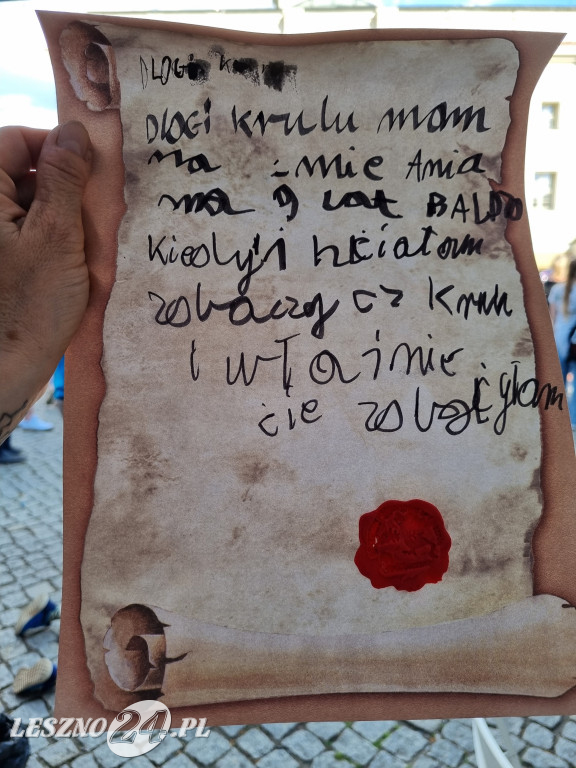 DLOGi
DLOGi krulu mam
na imie Ania
ma 9 lat BALDO
kiedyś hciałam
zobaczy cz kruk
i właśnie
cie zobaczyłam
LESZNO24.PL